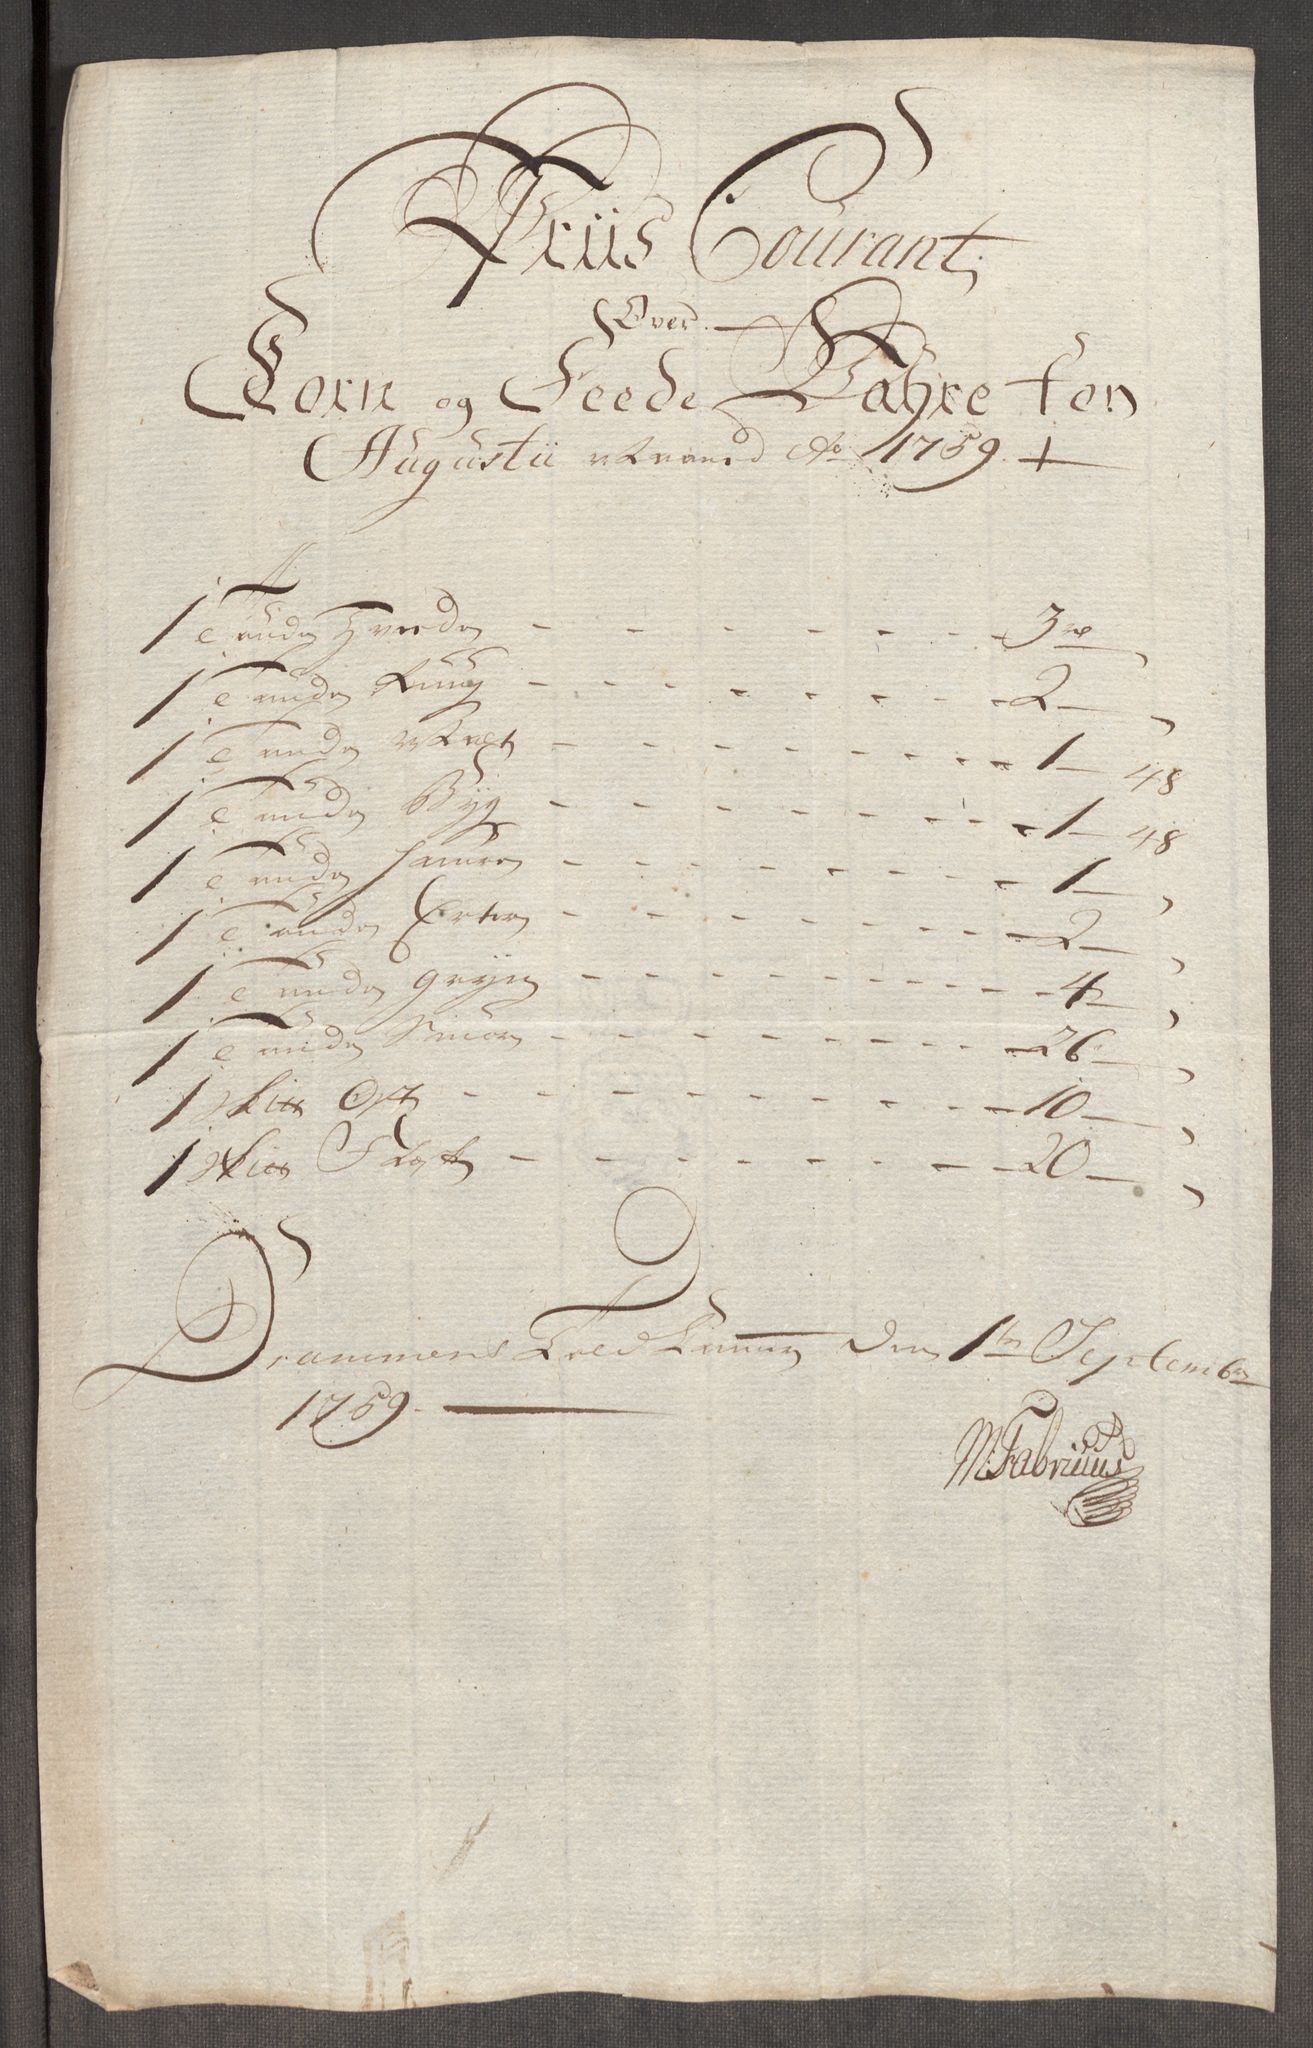 Priis Courant
Over
Corn og Feede Wahre for
Augustii Maaned Ao 1759
1 Tønde Hveede - - - 3 rd
1 Tønde Rug - - - 2 "
1 Tønde Malt - - - 1 48
1 Tønde Byg - - - 1 48
1 Tønde Haure - - - 1 "
1 Tønde Erter - - - 2 "
1 Tønde Gryn - - - 4 "
1 Tønde Smør - - - 26 "
1 Ost - - - 10 "
1 Flesk - - - 20 "
Drammens Told den 1te Septembr
1759
M: Fabritius